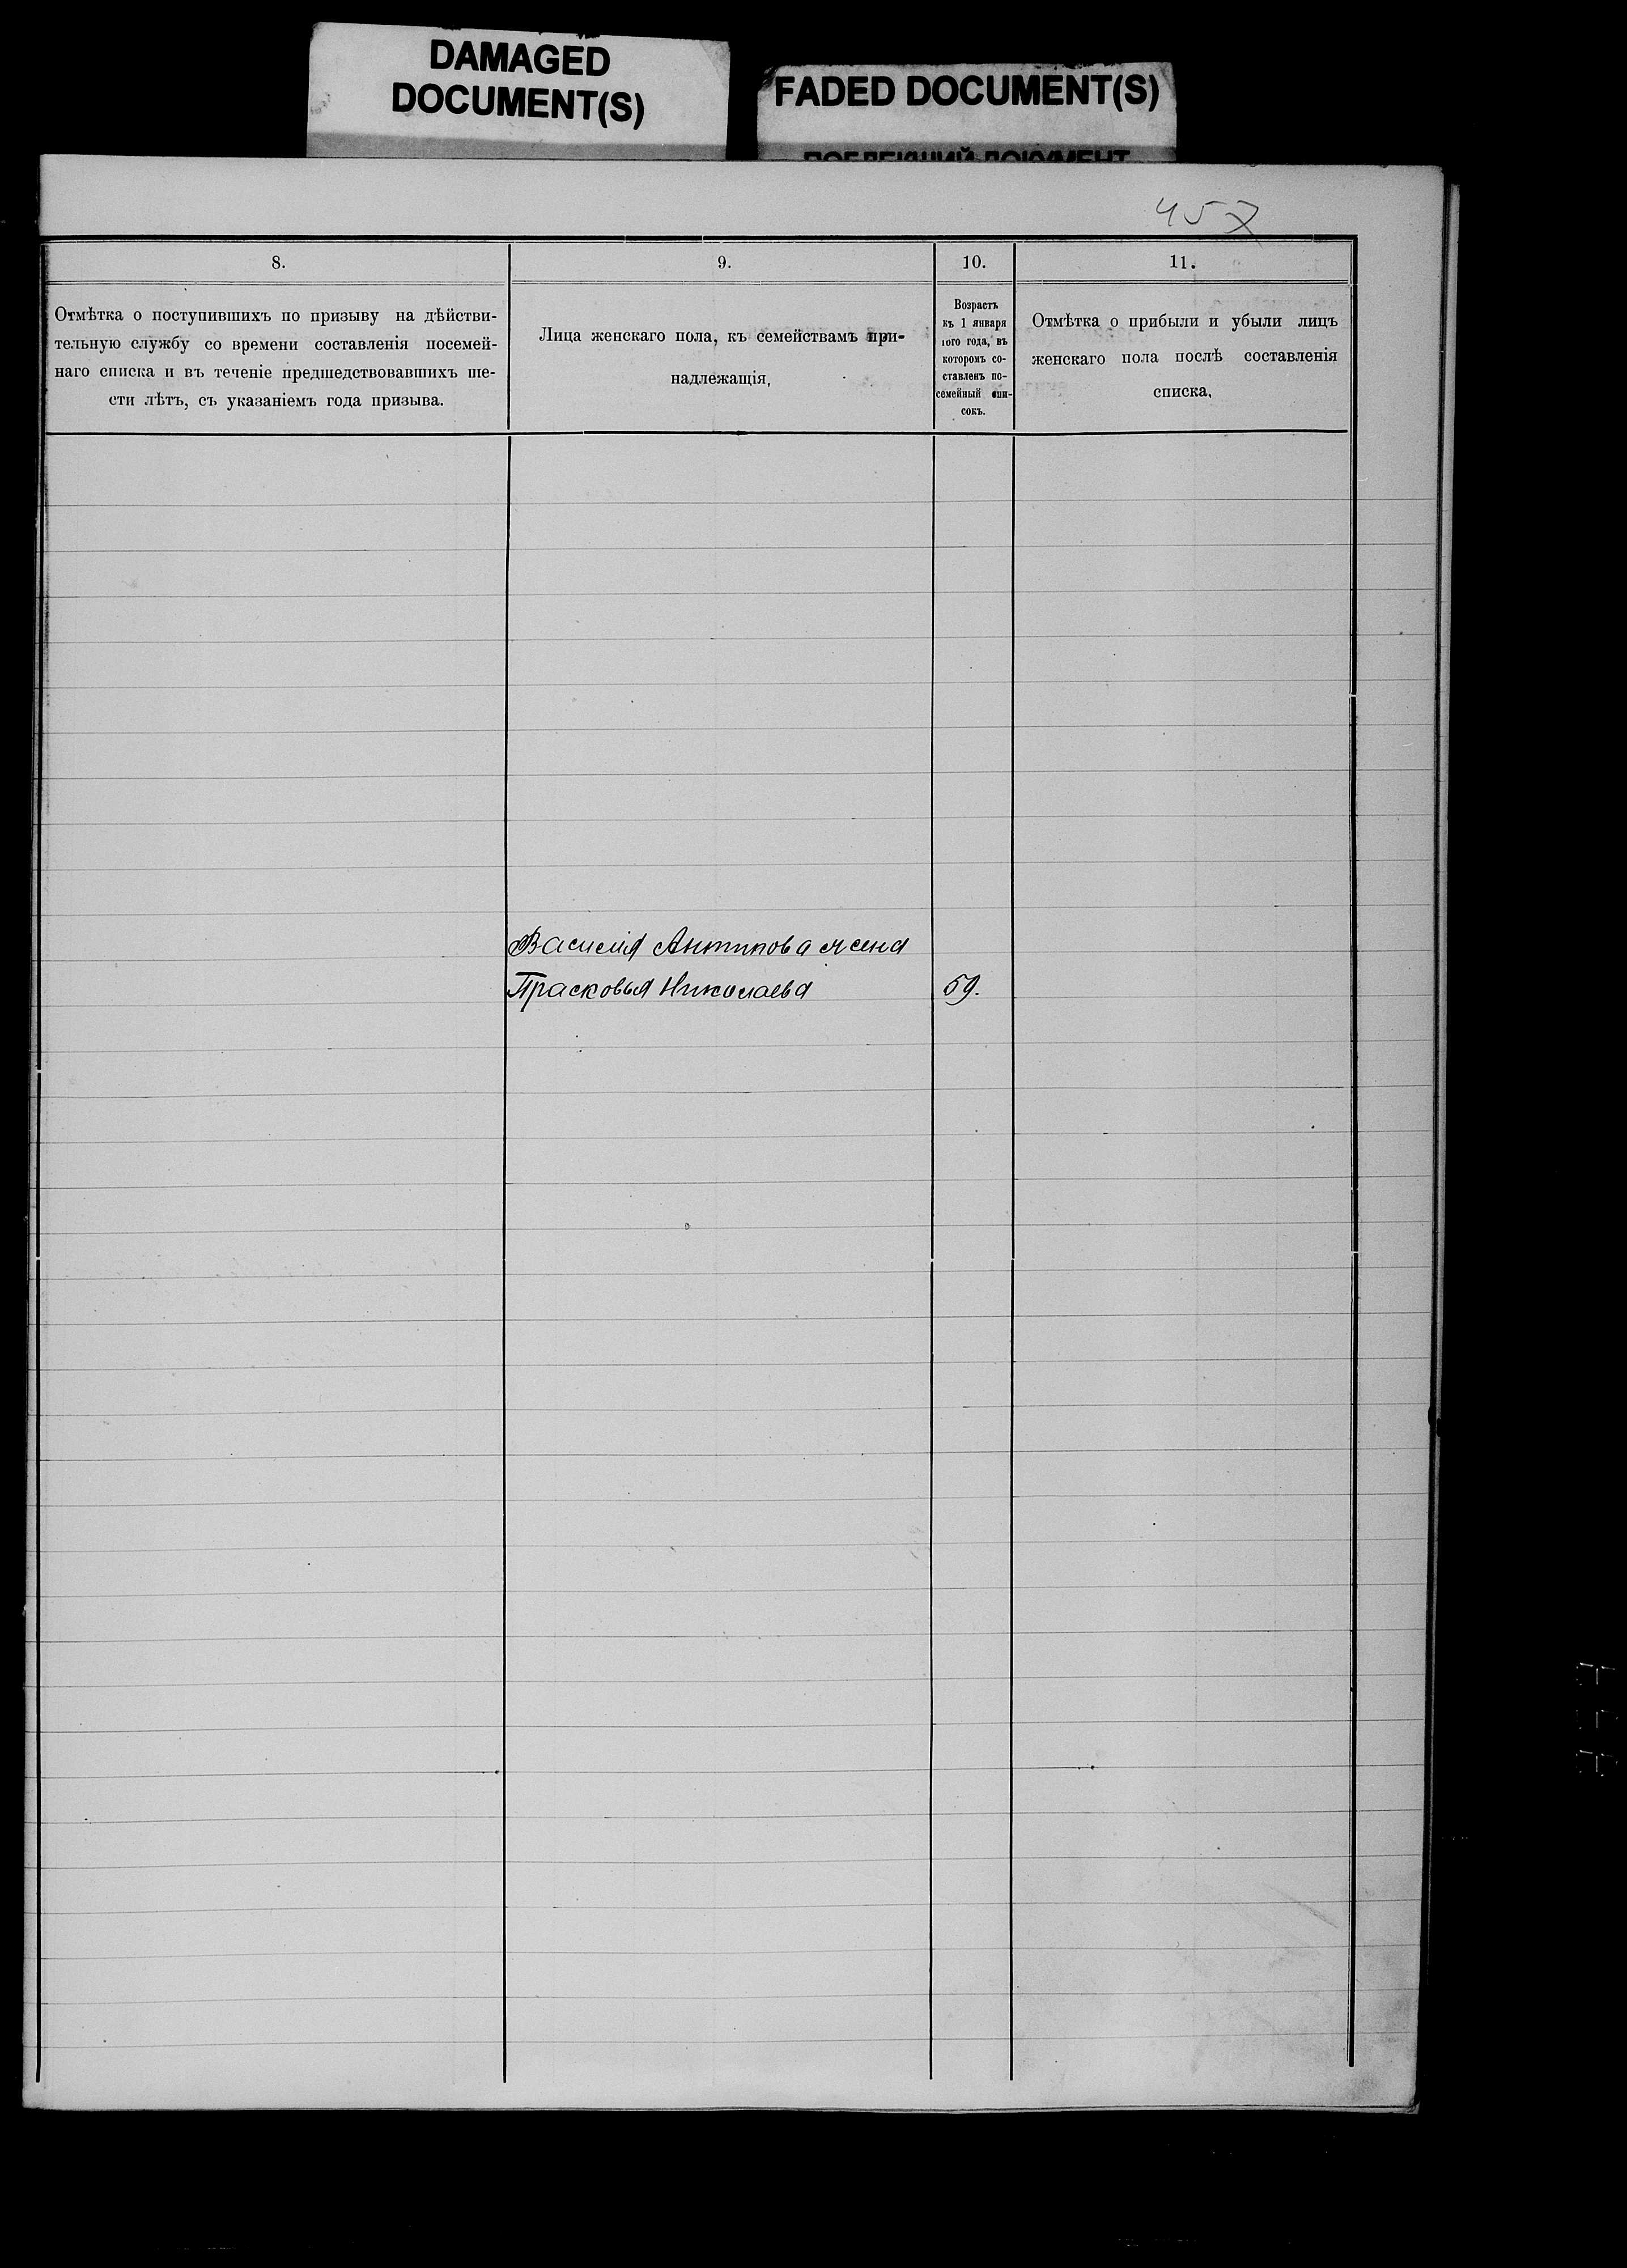 DAMAGED
DOCUMENT(S)
FADED DOCUMENT(S)
457
8.
9.
10.
11.
Отмѣтка о поступившихъ по призыву на дѣйстви-
тельную службу со времени составленія посемей-
наго списка и въ теченіе предшедствовавшихъ ше-
сти лѣтъ, съ указаніемъ года призыва.
Лица женскаго пола, къ семействамъ при-
надлежащія,
Возрастъ
къ 1 января
того года, въ
которомъ со-
ставленъ по-
семейный спи-
сокъ.
Отмѣтка о прибыли и убыли лицъ
женскаго пола послѣ составленія
списка,
Василія Антипова жена
Прасковья Николаева
59.